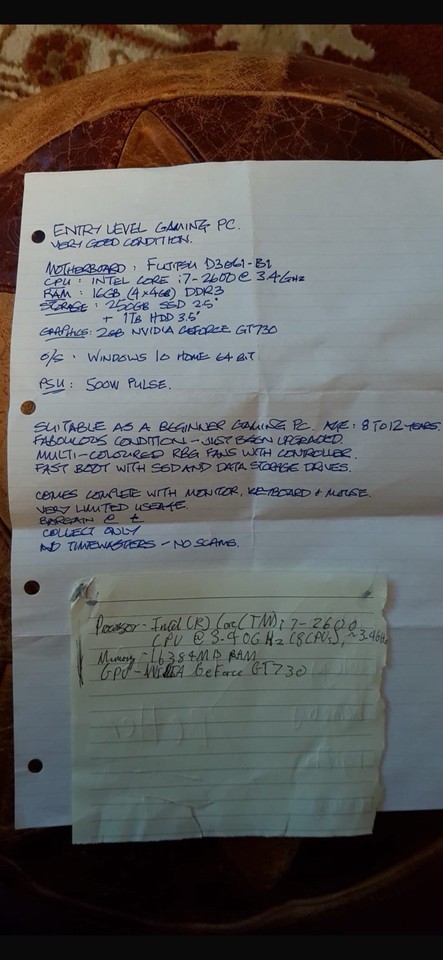 ENTRY LEVEL GAMING PC.
VERY GOOD CONDITION.
MOTHERBOARD : FUJITSU D3061-B1
CPU : INTEL CORE i7-2600 @ 3.4GHz
RAM : 16GB (4x4GB) DDR3
STORAGE : 250GB SSD 2.5"
+ 1TB HDD 3.5"
GRAPHICS: 2GB NVIDIA GEFORCE GT730
O/S : WINDOWS 10 HOME 64 BIT
PSU : 500W PULSE.
SUITABLE AS A BEGINNER GAMING PC. AGE : 8 TO 12 YEARS
FABOULOUS CONDITION - JUST BEEN UPGRADED.
MULTI-COLOURED RBG FANS WITH CONTROLLER.
FAST BOOT WITH SSD AND DATA STORAGE DRIVES.
COMES COMPLETE WITH MONITOR, KEYBOARD + MOUSE.
VERY LIMITED USEAGE.
BARGAIN @ £
COLLECT ONLY
NO TIMEWASTERS - NO SCAMS.
Processor - Intel (R) Core (TM) i7-2600
CPU @ 3.40GHz (8CPUs), ~3.4GHz
Memory - 16384MB RAM
GPU - NVIDIA GeForce GT730